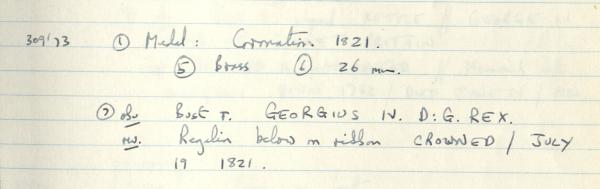 309'73 ① Medal: Coronation 1821.
⑤ Brass ⑥ 26 mm.
⑦ obv Bust r. GEORGIUS IV. D:G. REX.
rev. Regalia below on ribbon CROWNED / JULY
19 1821.